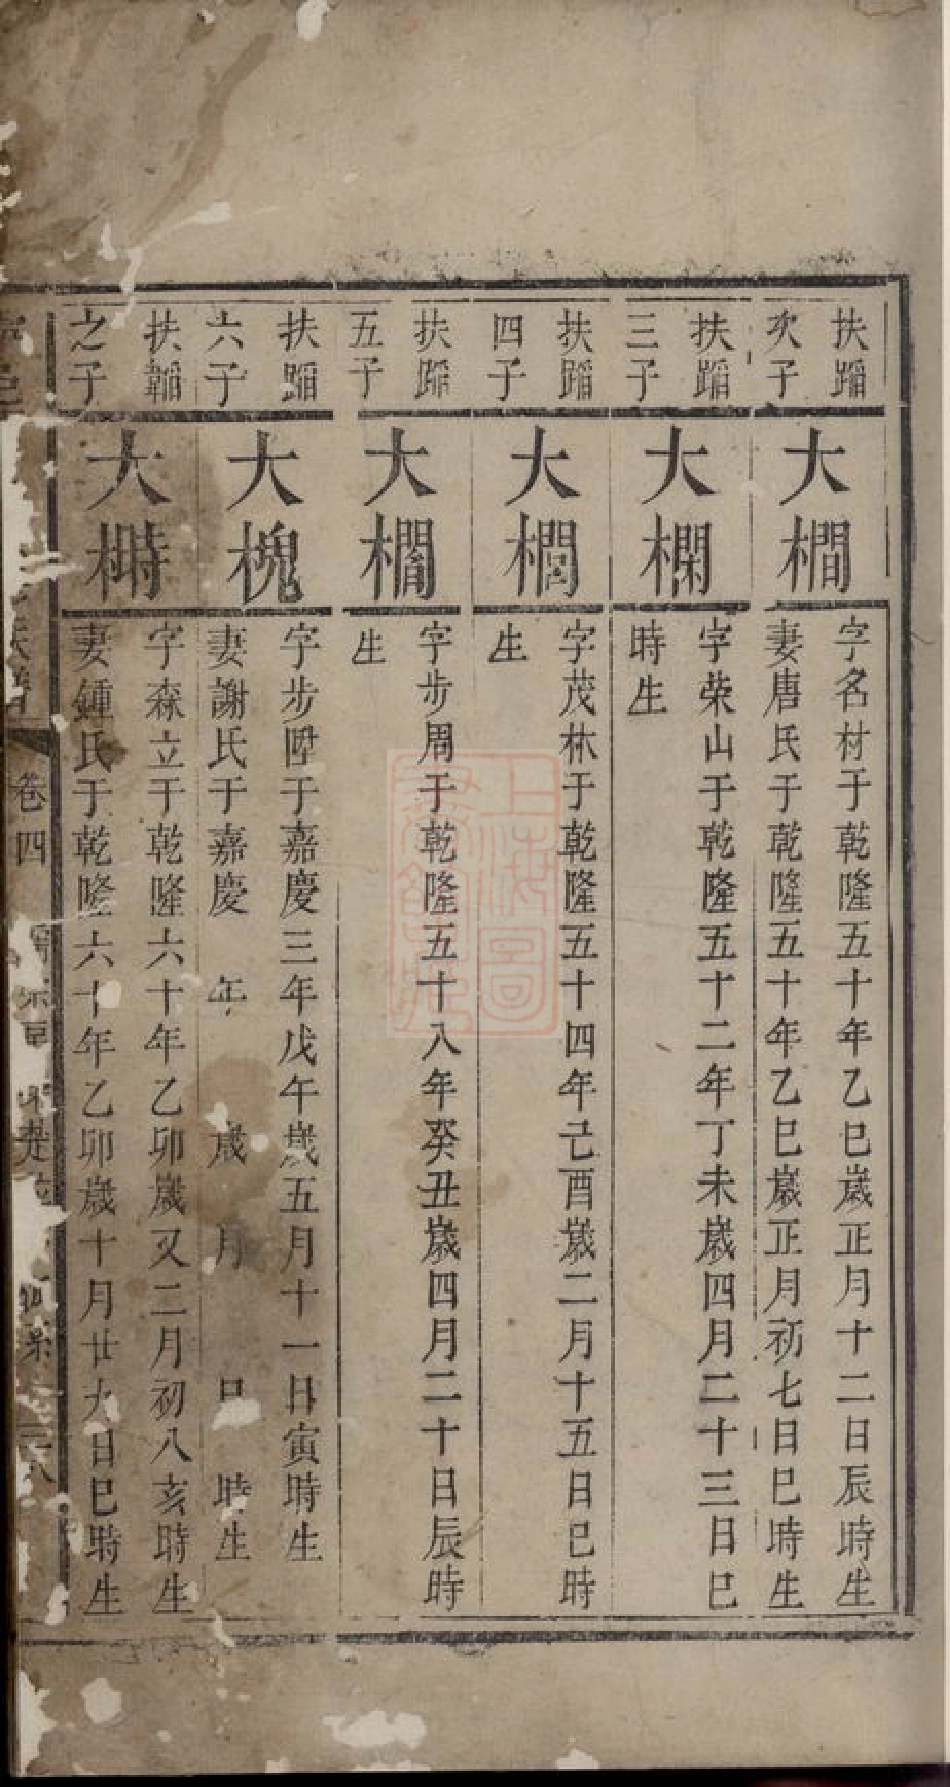 扶蹈
次子
大橺
字名材于乾隆五十年乙巳歲正月十二日辰時生
妻唐氏于乾隆五十年乙巳歲正月初七日巳時生
扶蹈
三子
大欄
字荣山于乾隆五十二年丁未歲四月二十三日巳
時生
扶蹈
四子
大
字茂林于乾隆五十四年己酉歲二月十五日巳時
生
扶蹈
五子
大
字步周于乾隆五十八年癸丑歲四月二十日辰時
生
扶蹈
六子
大槐
字步陞于嘉慶三年戊午歲五月十一日寅時生
妻謝氏于嘉慶 年 歲 月 日 時生
扶韜
之子
大榯
字森立于乾隆六十年乙卯歲又二月初八亥時生
妻鍾氏于乾隆六十年乙卯歲十月廿九日巳時生
卷四
上海圖